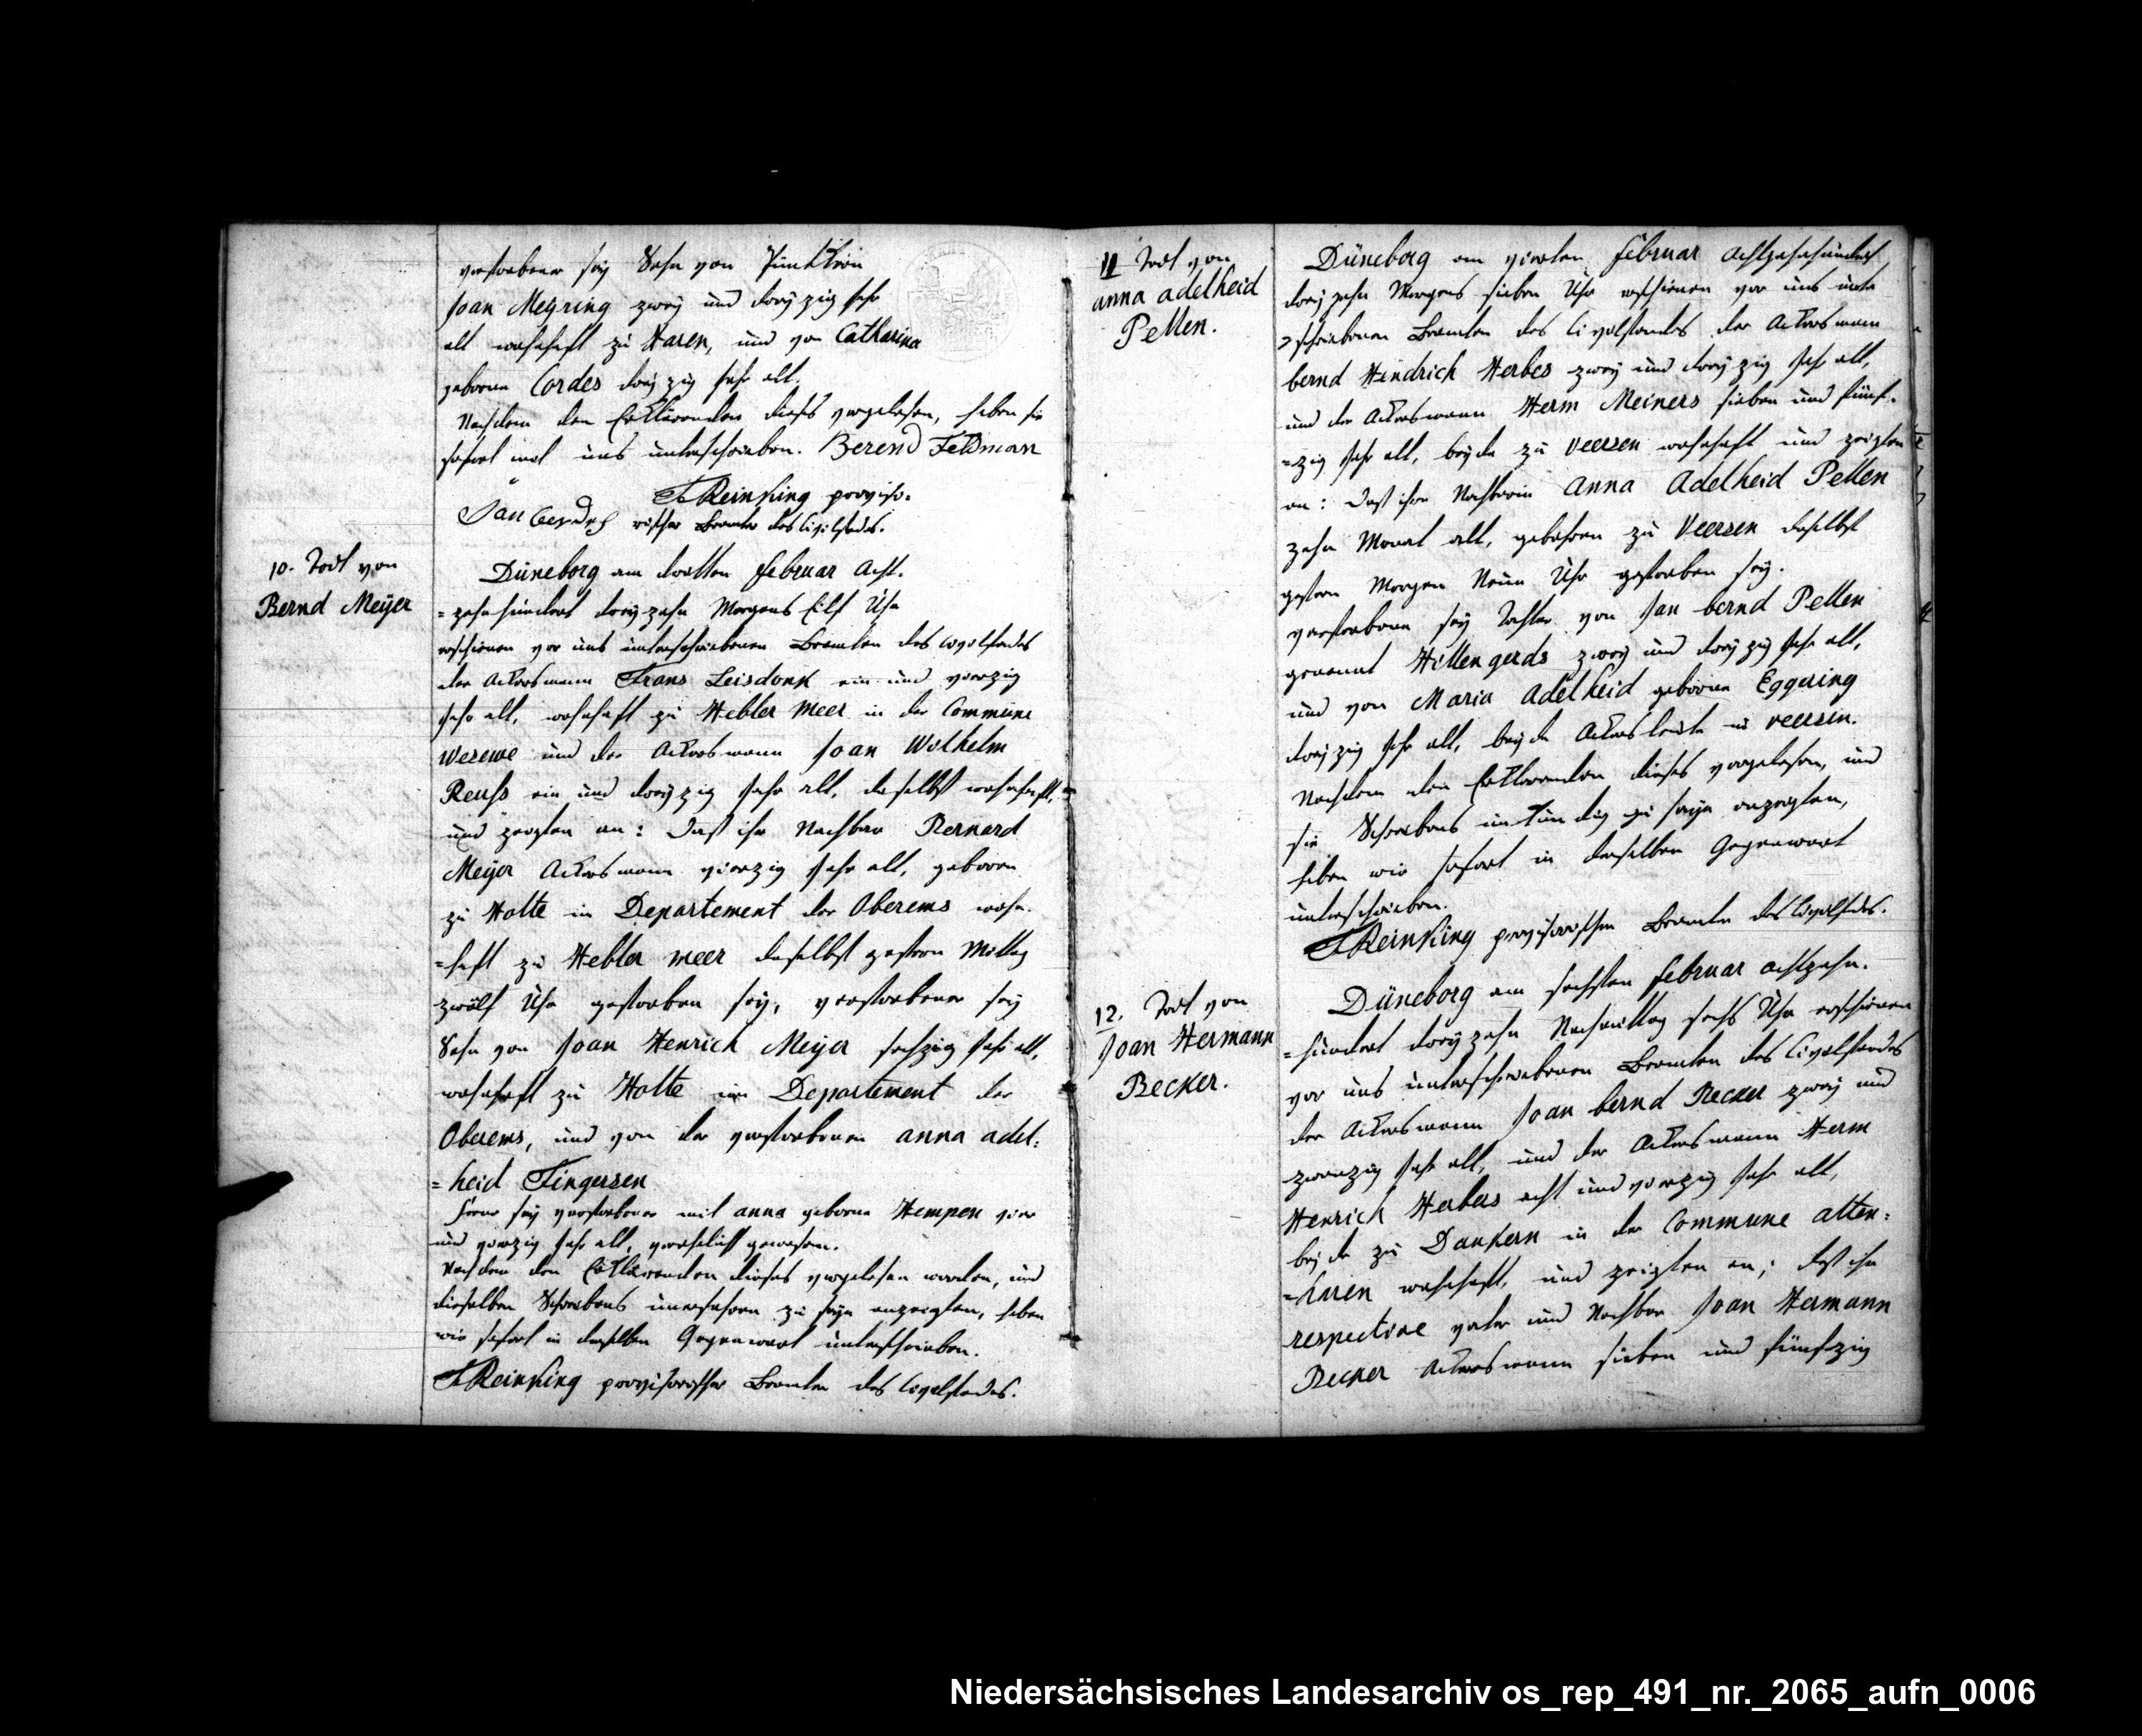 verstorbener sey Sohn von
Joan Meyring zwey und dreyzig Jahr
alt wohnhaft zu Haren, und von Catharina
geborne Cordes dreyzig Jahr alt.
Nachdem den Erklärenden dieses vorgelesen, haben sie
sofort mit uns unterschrieben. Berend Feldman
Jan Gerdes
FReinking proviso-
rischer Beamte des Civilstandes.
10. Todt von
Bernd Meÿer
Düneborg am dritten Februar Acht-
=zehnhundert dreyzehn Morgens Eilf Uhr
erschienen vor uns unterschriebenen Beamten des Civilstandes
der Ackersmann Frans Leisdonk ein und vierzig
Jahr alt, wohnhaft zu Hebler Meer in der Commune
Wesewe und der Ackersmann Joan Wilhelm
Reuss ein und dreyzig Jahr alt, daselbst wohnhaft,
und zeigten an: Dast ihr Nachbar Bernard
Meÿer Ackersmann vierzig Jahr alt, geboren
zu Holte in Departement der Oberems wohn-
=haft zu Hebler meer daselbst gestern Mittag
zwölf Uhr gestorben seÿ, verstorbener seÿ
Sohn von Joan Henrich Meÿer sechzig Jahr alt,
wohnhaft zu Holte im Departement der
Oberems, und von der verstorbenen anna adel:
=heid Fingersen
Ferner seÿ verstorbener mit anna geborne Hempen vier
und vierzig Jahr alt, verehelicht gewesen.
Nachdem den Erklärenden dieses vorgelesen worden, und
dieselben Schreibens unerfahren zu seÿn anzeigten, haben
wir sofort in derselben Gegenwart unterschrieben.
FReinking provisorischer Beamter des Civilstandes.
11 Todt von
anna adelheid
Pellen.
Düneborg am vierten Februar Achtzehnhundert
dreyzehn Morgens sieben Uhr erschienen vor uns unter
=schriebenen Beamten des Civilstandes der Ackersmann
bernd Hindrich Herbes zwey und dreyzig Jahr alt,
und der Ackersmann Herm Meiners sieben und fünf-
=zig Jahr alt, beÿde zu Veersen wohnhaft und zeigten
an: Dast ihre Nachbarin Anna Adelheid Pellen
zehn Monat alt, gebohren zu Veersen daselbst
gestern Morgen Neun Uhr gestorben seÿ.
verstorbene seÿ Tochter von Jan bernd Pellen
genannt Hillengerds zwey und dreyzig Jahr alt,
und von Maria Adelheid geborne Eggering
dreyzig Jahr alt, beÿde Ackersleute in veersen.
Nachdem den Erklärenden dieses vorgelesen, und
sie Schreibens unkundig zu seÿn anzeigten,
haben wir sofort in derselben Gegenwart
unterschrieben.
FReinking provisorischer Beamter des Civilstandes.
12. Todt von
Joan Hermann
Becker.
Düneborg am sechsten Februar achtzehn-
=hundert dreyzehn Nachmittag sechs Uhr erschienen
vor uns unterschriebenen Beamten des Civilstandes
der Ackersmann Joan bernd Becker zwey und
zwanzig Jahr alt, und der Ackersmann Herm
Henrich Herbers acht und vierzig Jahr alt,
beÿde zu Dankern in der Commune alten:
=haren wohnhaft, und zeigten an; dast ihr
respective vater und Nachbar Joan Hermann
Becker Ackersmann sieben und fünfzig
Niedersächsisches Landesarchiv os_rep_491_nr._2065_aufn_0006